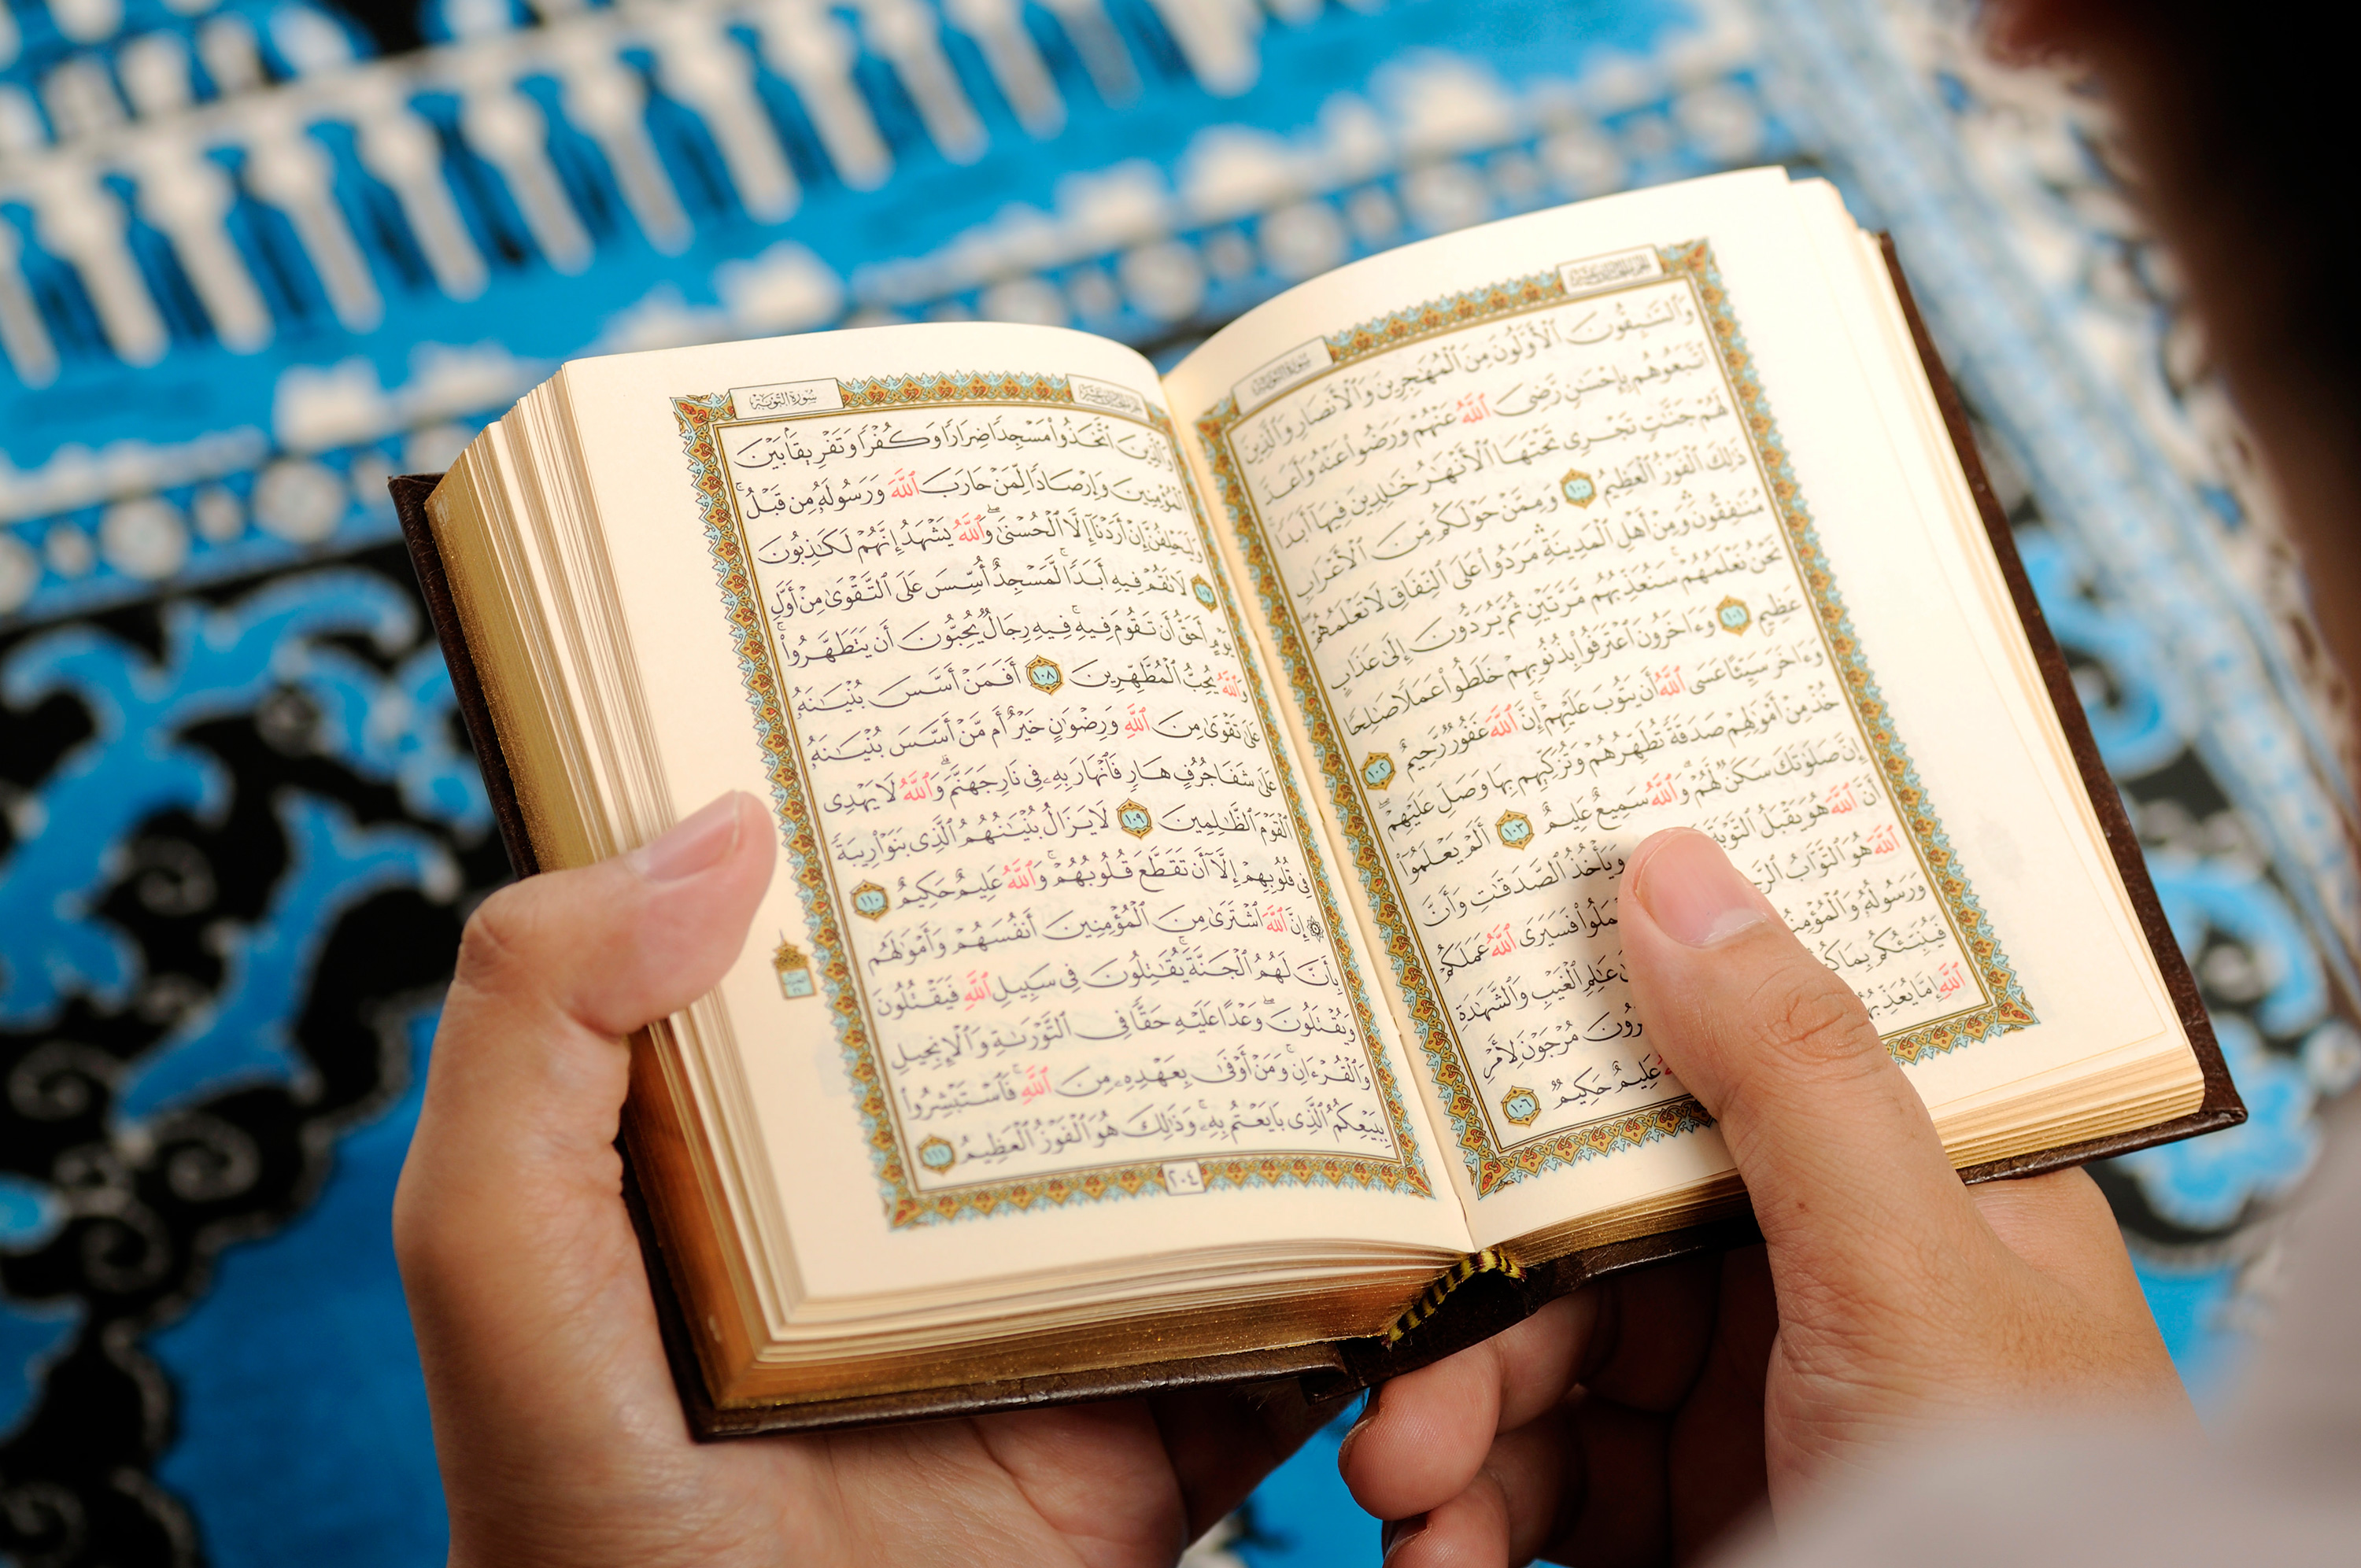 سورة التوبة
وَالسَّابِقُونَ الْأَوَّلُونَ مِنَ الْمُهَاجِرِينَ وَالْأَنصَارِ وَالَّذِينَ
اتَّبَعُوهُم بِإِحْسَانٍ رَّضِيَ اللَّهُ عَنْهُمْ وَرَضُوا عَنْهُ وَأَعَدَّ
لَهُمْ جَنَّاتٍ تَجْرِي تَحْتَهَا الْأَنْهَارُ خَالِدِينَ فِيهَا أَبَدًا
ذَٰلِكَ الْفَوْزُ الْعَظِيمُ ١٠٠ وَمِمَّنْ حَوْلَكُم مِّنَ الْأَعْرَابِ
مُنَافِقُونَ وَمِنْ أَهْلِ الْمَدِينَةِ مَرَدُوا عَلَى النِّفَاقِ لَا تَعْلَمُهُمْ
نَحْنُ نَعْلَمُهُمْ سَنُعَذِّبُهُم مَّرَّتَيْنِ ثُمَّ يُرَدُّونَ إِلَىٰ عَذَابٍ
عَظِيمٍ ١٠١ وَءَاخَرُونَ اعْتَرَفُوا بِذُنُوبِهِمْ خَلَطُوا عَمَلًا صَالِحًا
وَءَاخَرَ سَيِّئًا عَسَى اللَّهُ أَن يَتُوبَ عَلَيْهِمْ إِنَّ اللَّهَ غَفُورٌ رَّحِيمٌ ١٠٢
خُذْ مِنْ أَمْوَالِهِمْ صَدَقَةً تُطَهِّرُهُمْ وَتُزَكِّيهِم بِهَا وَصَلِّ عَلَيْهِمْ
إِنَّ صَلَوٰتَكَ سَكَنٌ لَّهُمْ وَاللَّهُ سَمِيعٌ عَلِيمٌ ١٠٣ أَلَمْ يَعْلَمُوا
أَنَّ اللَّهَ هُوَ يَقْبَلُ التَّوْبَةَ وَيَأْخُذُ الصَّدَقَاتِ وَأَنَّ
اللَّهَ هُوَ التَّوَّابُ فَسَيَرَى اللَّهُ عَمَلَكُمْ
وَرَسُولُهُ وَالْمُؤْمِنُونَ عَالِمِ الْغَيْبِ وَالشَّهَادَةِ
فَيُنَبِّئُكُم بِمَا مُرْجَوْنَ لِأَمْرِ
اللَّهِ إِمَّا يُعَذِّبُهُمْ عَلِيمٌ حَكِيمٌ ١٠٦
سورة التوبة
وَالَّذِينَ اتَّخَذُوا مَسْجِدًا ضِرَارًا وَكُفْرًا وَتَفْرِيقًا بَيْنَ
الْمُؤْمِنِينَ وَإِرْصَادًا لِّمَنْ حَارَبَ اللَّهَ وَرَسُولَهُ مِن قَبْلُ
وَلَيَحْلِفُنَّ إِنْ أَرَدْنَا إِلَّا الْحُسْنَىٰ وَاللَّهُ يَشْهَدُ إِنَّهُمْ لَكَاذِبُونَ
١٠٧ لَا تَقُمْ فِيهِ أَبَدًا لَّمَسْجِدٌ أُسِّسَ عَلَى التَّقْوَىٰ مِنْ أَوَّلِ
يَوْمٍ أَحَقُّ أَن تَقُومَ فِيهِ فِيهِ رِجَالٌ يُحِبُّونَ أَن يَتَطَهَّرُوا
وَاللَّهُ يُحِبُّ الْمُطَّهِّرِينَ ١٠٨ أَفَمَنْ أَسَّسَ بُنْيَانَهُ
عَلَىٰ تَقْوَىٰ مِنَ اللَّهِ وَرِضْوَانٍ خَيْرٌ أَم مَّنْ أَسَّسَ بُنْيَانَهُ
عَلَىٰ شَفَا جُرُفٍ هَارٍ فَانْهَارَ بِهِ فِي نَارِ جَهَنَّمَ وَاللَّهُ لَا يَهْدِي
الْقَوْمَ الظَّالِمِينَ ١٠٩ لَا يَزَالُ بُنْيَانُهُمُ الَّذِي بَنَوْا رِيبَةً
فِي قُلُوبِهِمْ إِلَّا أَن تَقَطَّعَ قُلُوبُهُمْ وَاللَّهُ عَلِيمٌ حَكِيمٌ ١١٠
إِنَّ اللَّهَ اشْتَرَىٰ مِنَ الْمُؤْمِنِينَ أَنفُسَهُمْ وَأَمْوَالَهُم
بِأَنَّ لَهُمُ الْجَنَّةَ يُقَاتِلُونَ فِي سَبِيلِ اللَّهِ فَيَقْتُلُونَ
وَيُقْتَلُونَ وَعْدًا عَلَيْهِ حَقًّا فِي التَّوْرَاةِ وَالْإِنجِيلِ
وَالْقُرْءَانِ وَمَنْ أَوْفَىٰ بِعَهْدِهِ مِنَ اللَّهِ فَاسْتَبْشِرُوا
بِبَيْعِكُمُ الَّذِي بَايَعْتُم بِهِ وَذَٰلِكَ هُوَ الْفَوْزُ الْعَظِيمُ ١١١
٢٠٤